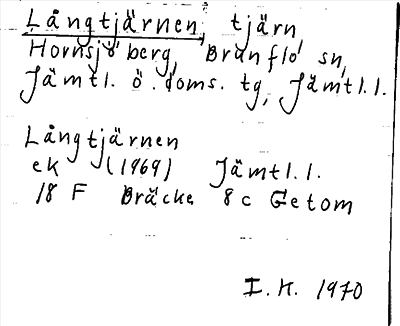 Långtjärnen, tjärn
Hornsjöberg, Brunflo sn,
Jämtl. ö. doms. tg, Jämtl.l.
Långtjärnen
ek (1969) Jämtl.l.
18 F Bräcke 8c Getom
I.H. 1970